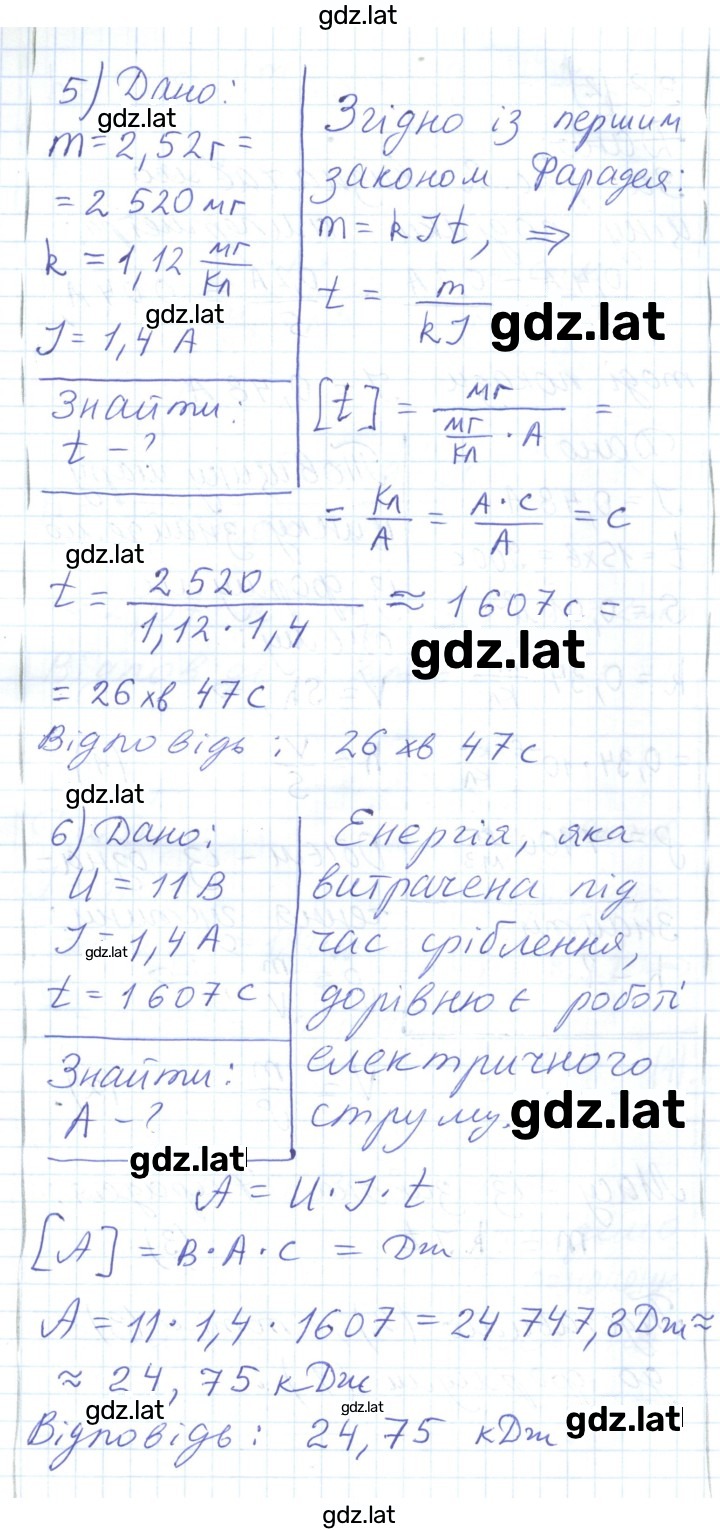 gdz.lat
5) Дано:
gdz.lat
m = 2,52 г =
= 2 520 мг
k = 1,12 мг/Кл
gdz.lat
I = 1,4 А
Знайти:
t – ?
Згідно із першим
законом Фарадея:
m = k I t, ⇒
t = m/kI
gdz.lat
[t] = мг/(мг/Кл · А) =
= Кл/А = А·с/А = с
gdz.lat
t = 2 520/(1,12·1,4) ≈ 1607 с =
gdz.lat
= 26 хв 47 с
Відповідь: 26 хв 47 с
gdz.lat
6) Дано:
U = 11 В
I = 1,4 А
gdz.lat
t = 1607 с
Знайти:
А – ?
gdz.lat
Енергія, яка
витрачена під
час сріблення,
дорівнює роботі
електричного
струму.
gdz.lat
А = U · I · t
[А] = В · А · с = Дж
А = 11 · 1,4 · 1607 = 24 747,8 Дж ≈
≈ 24,75 кДж
gdz.lat
gdz.lat
Відповідь: 24,75 кДж
gdz.lat
gdz.lat